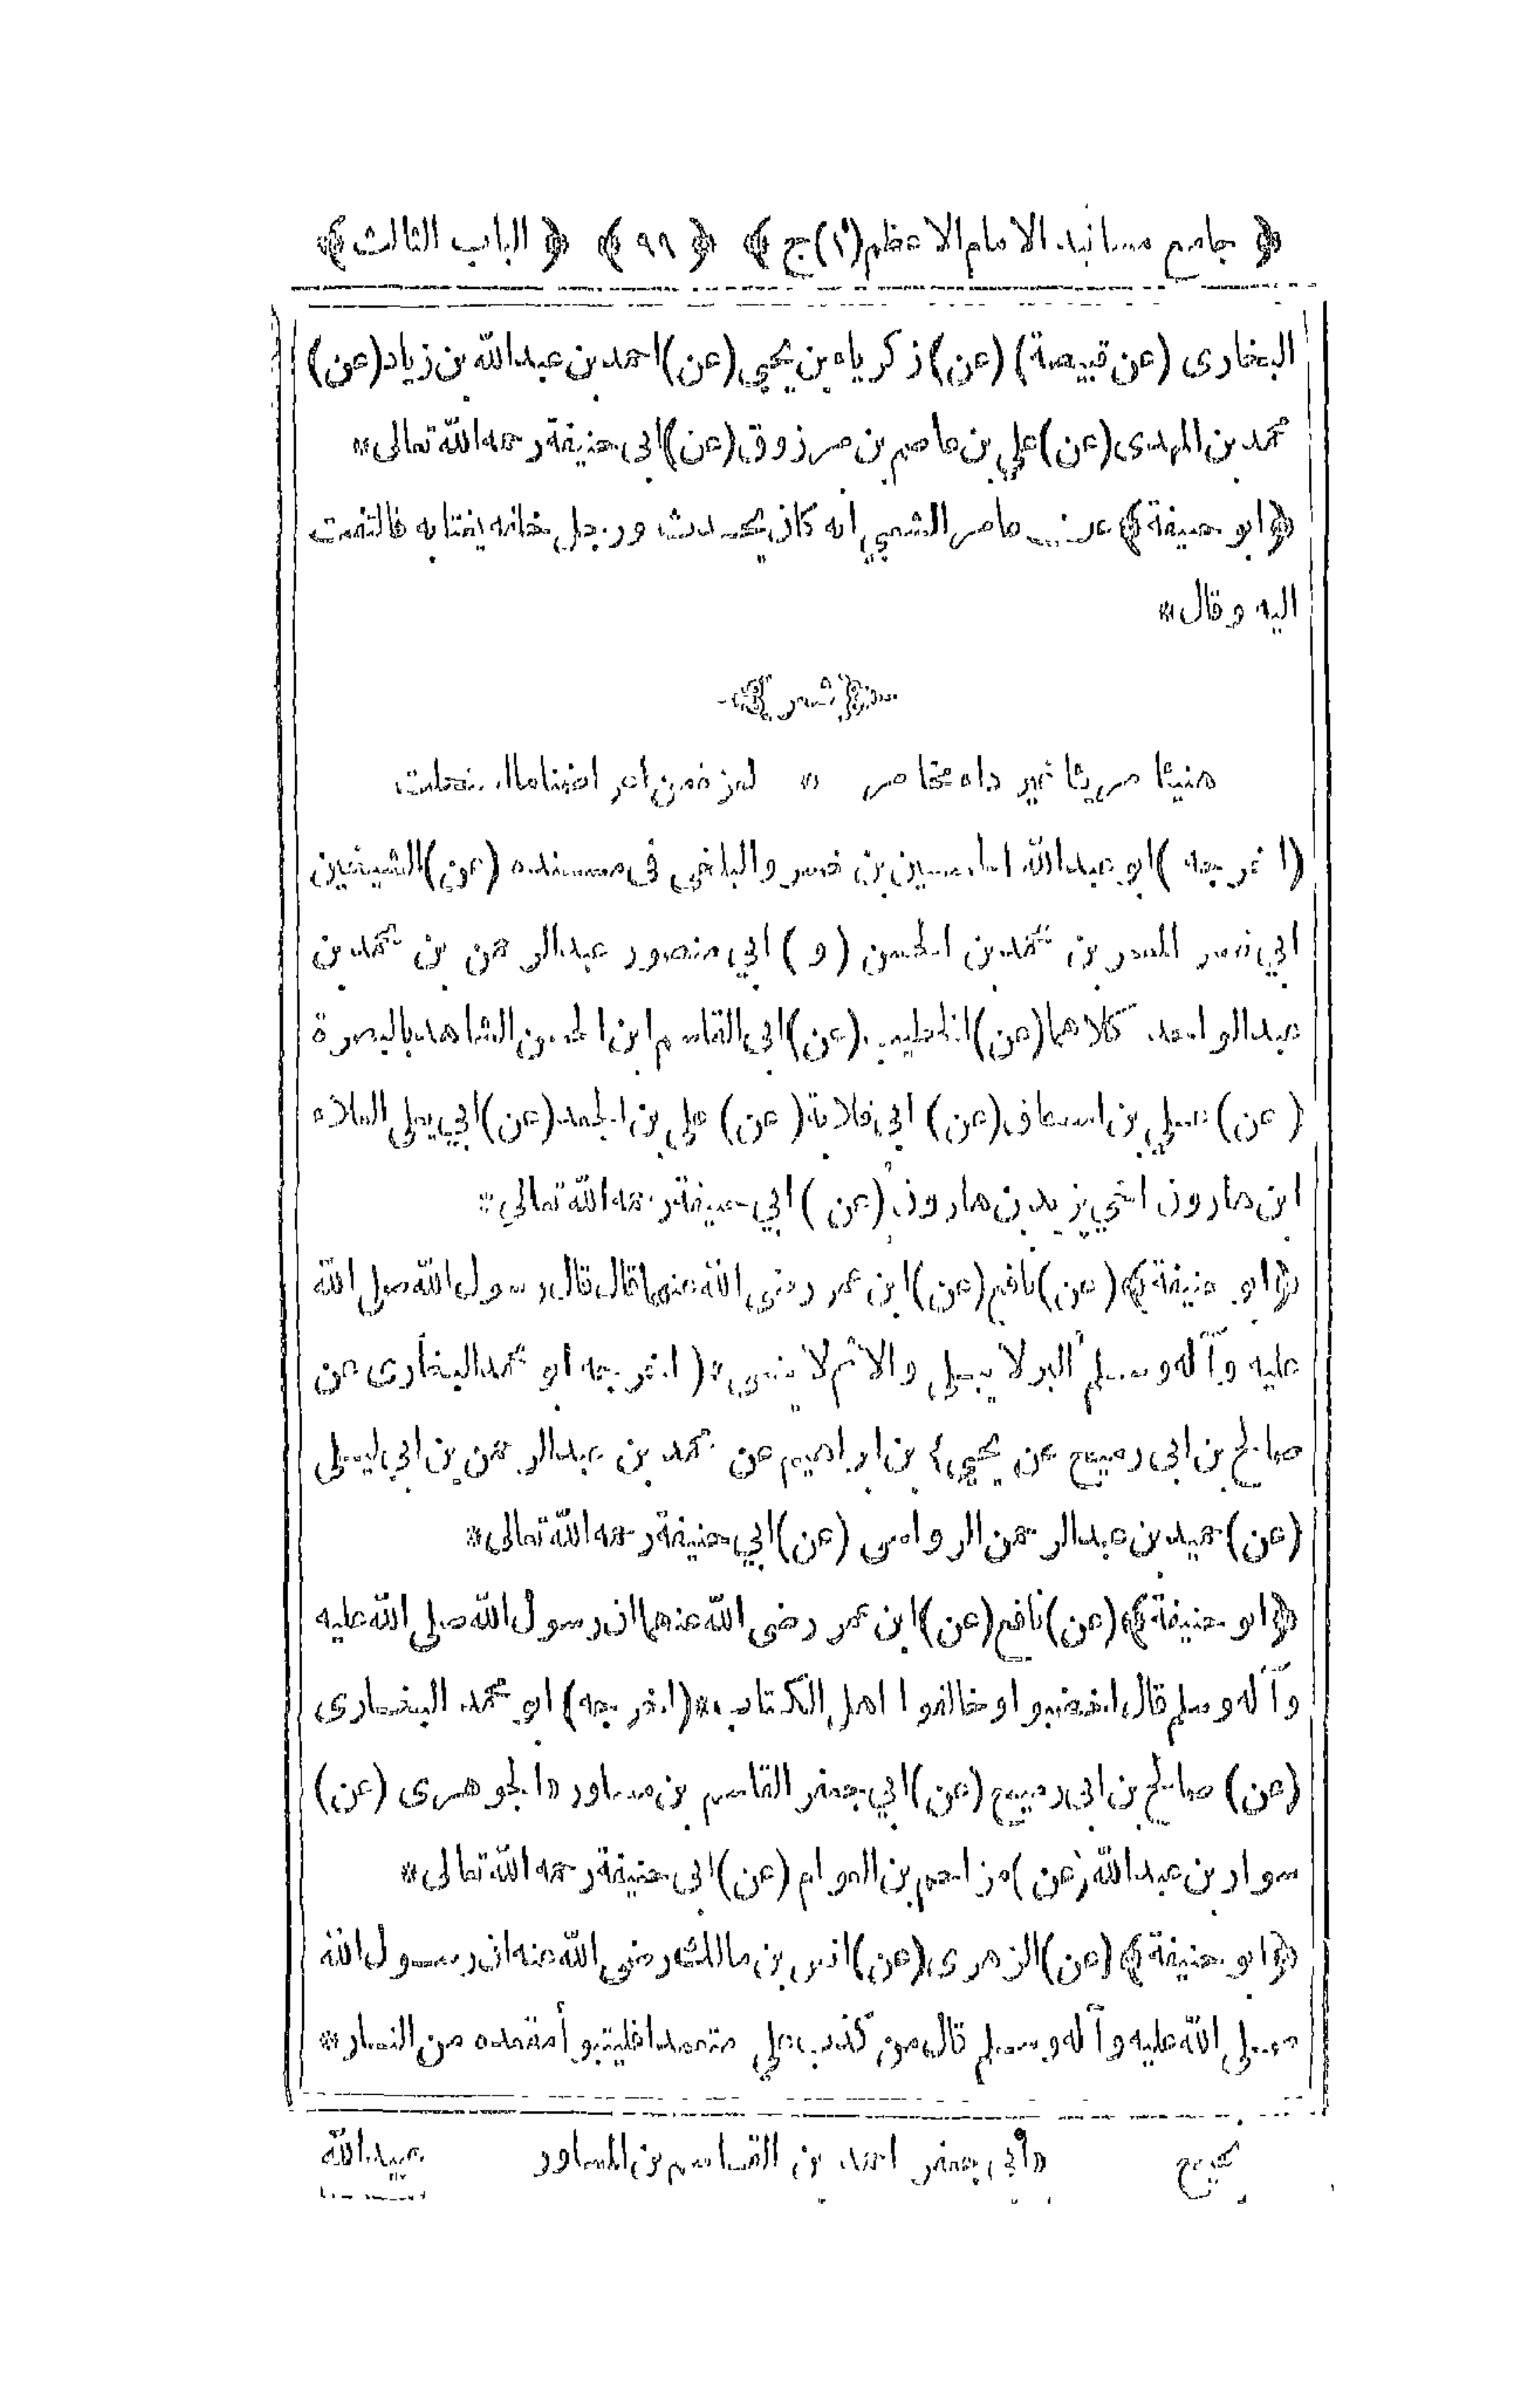 ﴿ جامع مسانيد الامام الاعظم (١) ج ﴾ ﴿ ٩٩ ﴾ ﴿ الباب الثالث ﴾
البخارى (عن قبيصة) (عن) زكرياء بن يحيى (عن) احمد بن عبدالله بن زياد (عن)
محمد بن المهدى (عن) علي بن عاصم بن مرزوق (عن) ابى حنيفة رحمه الله تعالى *
﴿ ابو حنيفة ﴾ عن عامر الشعبي انه كان يحدث ورجل خلفه يغتابه فالتفت
اليه وقال *
﴿ شعر ﴾
هنيئا مريئا غير داء مخامر * لعزة من اعراضنا ما استحلت
(اخرجه) ابو عبدالله الحسين بن خسرو البلخى فى مسنده (عن) الشيخين
ابي نصر المعمر بن محمد بن الحسن (و) ابي منصور عبدالرحمن بن محمد بن
عبدالواحد كلاهما (عن) الخطيب (عن) ابى القاسم ابن الحسن الشاهد بالبصرة
(عن) علي بن اسحاق (عن) ابى قلابة (عن) علي بن الجعد (عن) ابي يعلى العلاء
ابن هارون اخي يزيد بن هارون (عن) ابي حنيفة رحمه الله تعالى *
﴿ ابو حنيفة ﴾ (عن) نافع (عن) ابن عمر رضى الله عنهما قال قال رسول الله صلى الله
عليه وآله وسلم البر لا يبلى والاثم لا ينسى * (اخرجه ابو محمد البخارى عن
صالح بن ابى رميح عن يحيى بن ابراهيم عن محمد بن عبدالرحمن بن ابى ليلى
(عن) حميد بن عبدالرحمن الرواسى (عن) ابي حنيفة رحمه الله تعالى *
﴿ ابو حنيفة ﴾ (عن) نافع (عن) ابن عمر رضى الله عنهما ان رسول الله صلى الله عليه
وآله وسلم قال اخضبوا وخالفوا اهل الكتاب * (اخرجه) ابو محمد البخارى
(عن) صالح بن ابى رميح (عن) ابي جعفر القاسم بن مساور الجوهرى (عن)
سوار بن عبدالله (عن) مزاحم بن العوام (عن) ابى حنيفة رحمه الله تعالى *
﴿ ابو حنيفة ﴾ (عن) الزهرى (عن) انس بن مالك رضى الله عنه ان رسول الله
صلى الله عليه وآله وسلم قال من كذب علي متعمدا فليتبوأ مقعده من النار *
ابى جعفر احمد بن القاسم بن المساور
عبيد الله